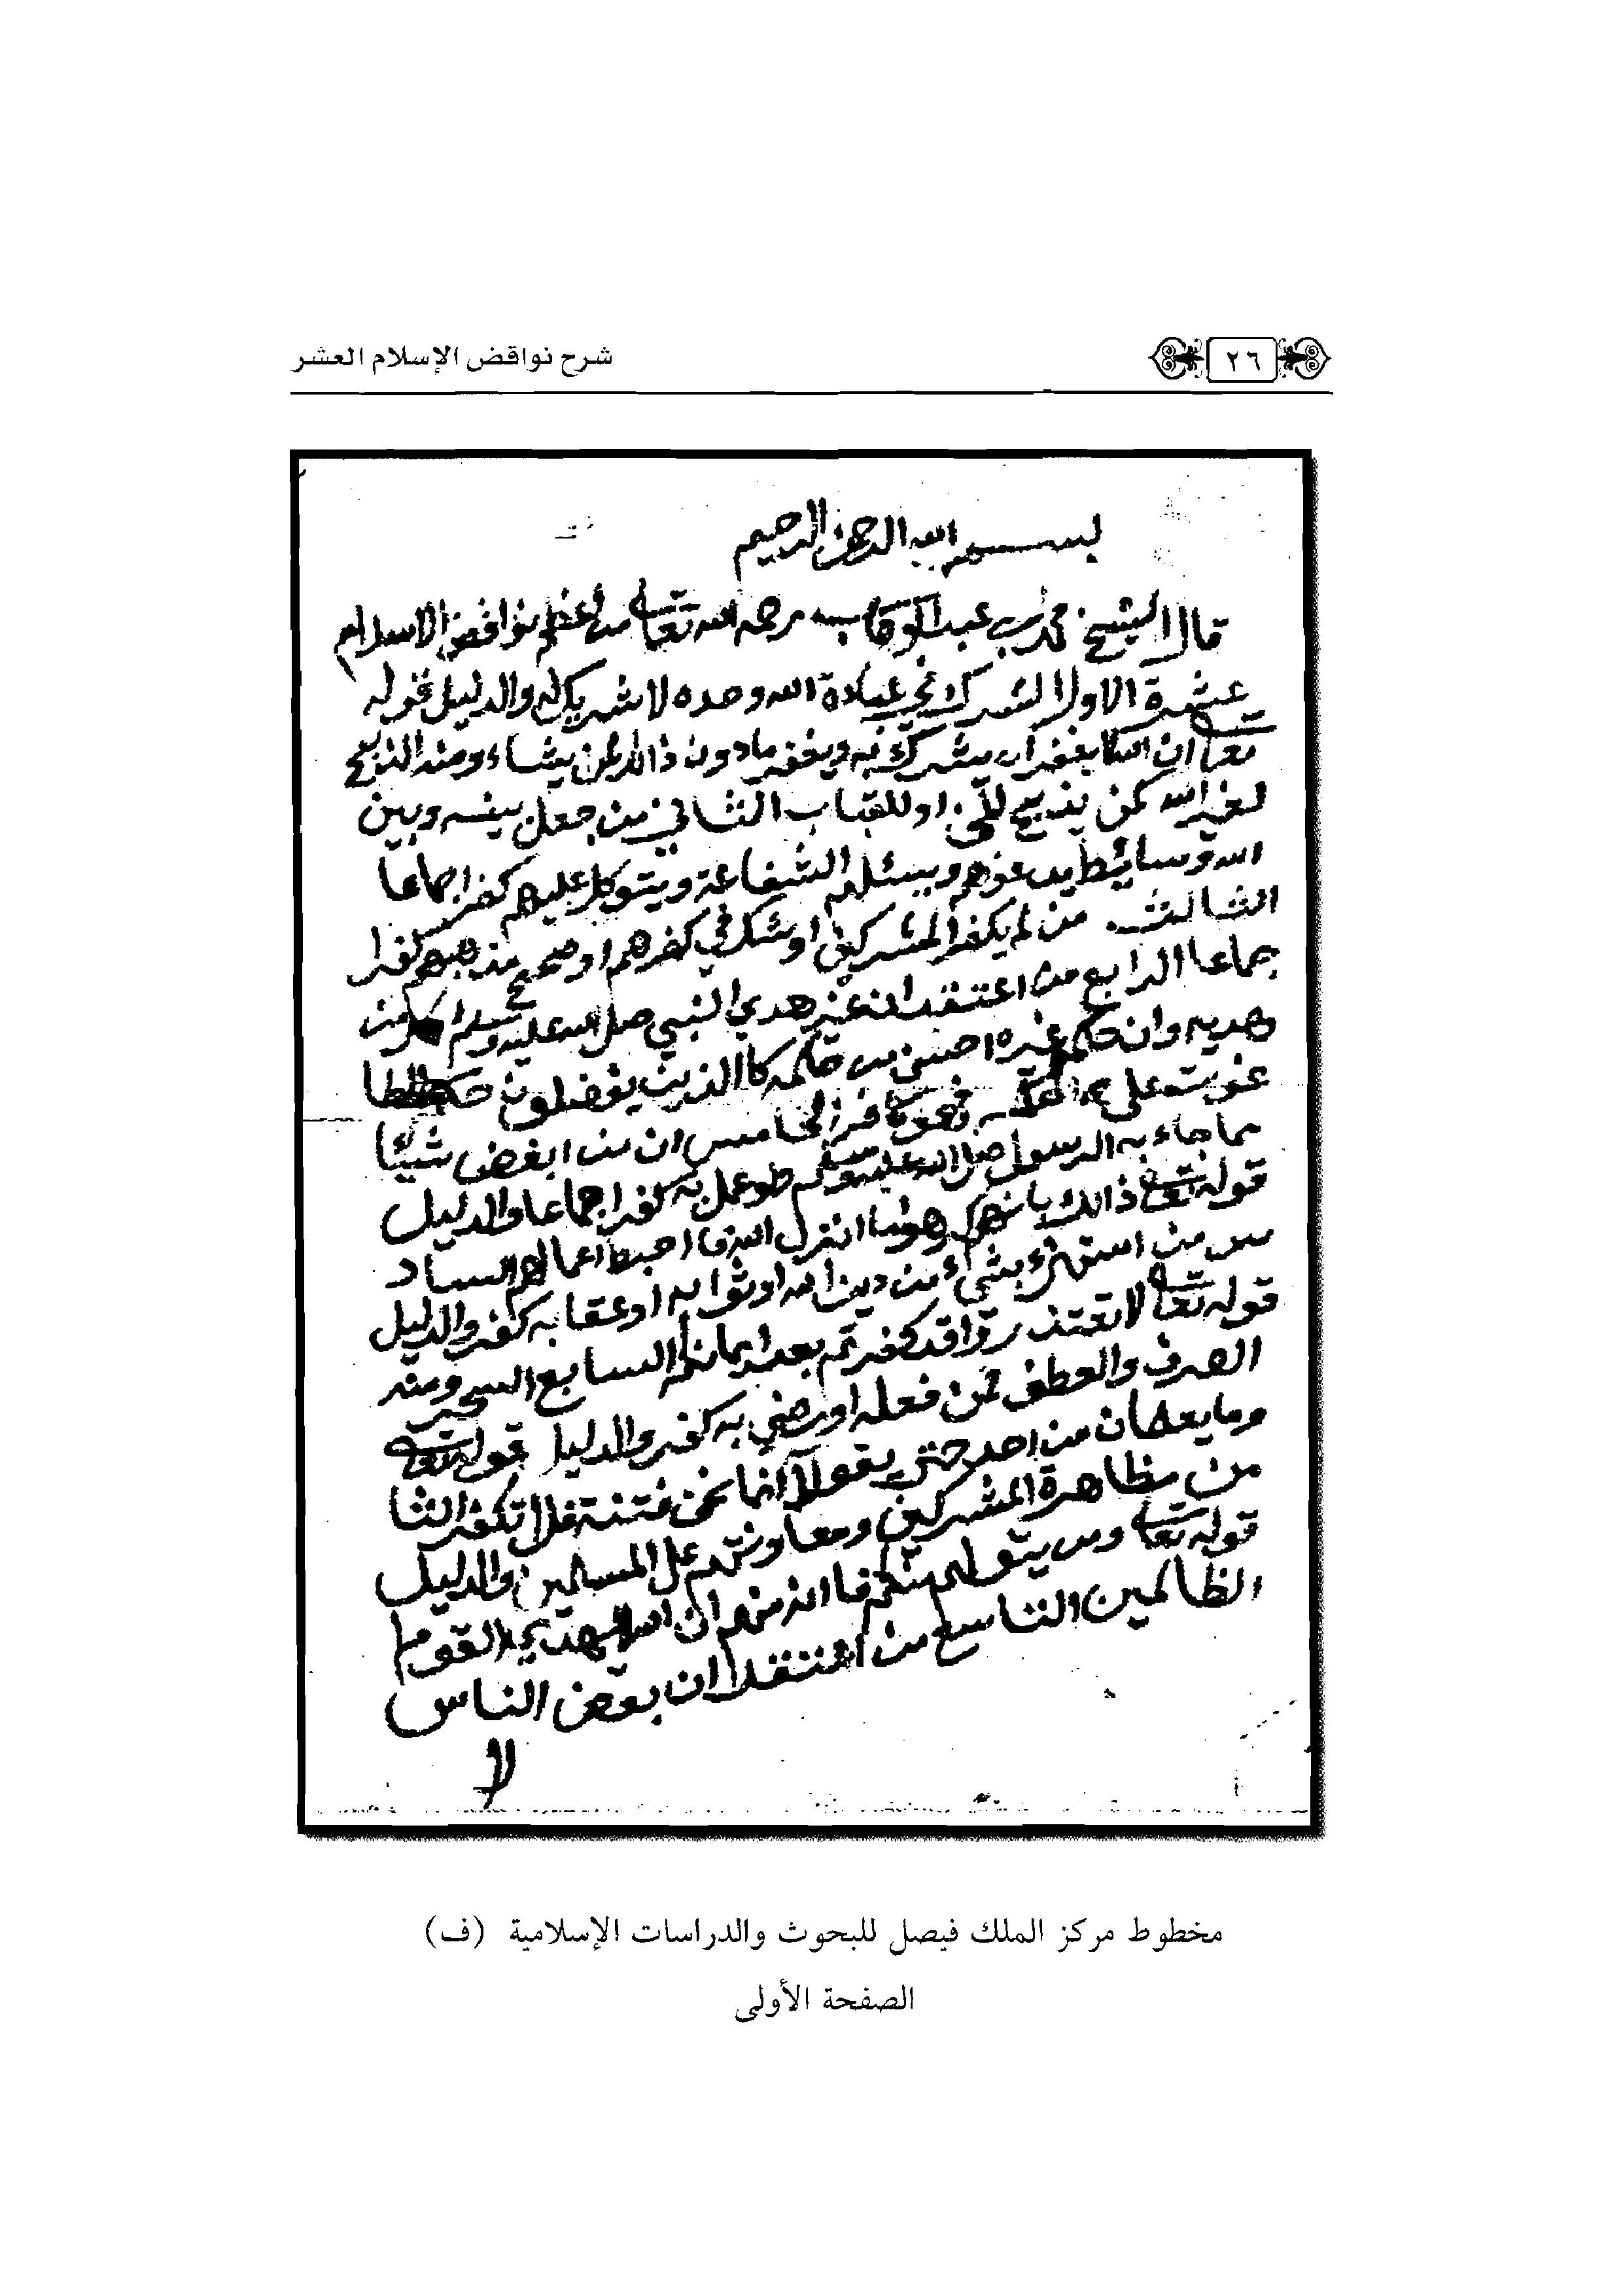 شرح نواقض الإسلام العشر
٢٦
بسم الله الرحمن الرحيم
قال الشيخ محمد بن عبد الوهاب رحمه الله تعالى من اعظم نواقض الاسلام
عشرة الاول الشرك في عبادة الله وحده لا شريك له والدليل قوله
تعالى ان الله لا يغفر ان يشرك به ويغفر ما دون ذالك لمن يشاء ومنه الذبح
لغير الله كمن يذبح للجن او للقباب الثاني من جعل بينه وبين
الله وسائط يدعوهم ويسئلهم الشفاعة ويتوكل عليهم كفر اجماعا
الثالث من لم يكفر المشركين او شك في كفرهم او صحح مذهبهم كفر ا
جماعا الرابع من اعتقد ان غير هدي النبي صلى الله عليه وسلم اكمل من
هديه وان حكم غيره احسن من حكمه كا الذين يفضلون حكم الطا
غوت على حكمه فهو كافر الخامس ان من ابغض شيئا
مما جاء به الرسول صلى الله عليه وسلم ولو عمل به كفر اجماعا والدليل
قوله تعالى ذالك بانهم كرهوا ما انزل الله فاحبط اعمالهم الساد
س من استهزء بشيء من دين الله او ثوابه او عقابه كفر والدليل
قوله تعالى لا تعتذروا قد كفرتم بعد ايمانكم السابع السحر ومنه
الصرف والعطف فمن فعله او رضي به كفر والدليل قوله تعالى
وما يعلمان من احد حتى يقولا انما نحن فتنة فلا تكفر الثا
من مظاهرة المشركين ومعاونتهم على المسلمين والدليل
قوله تعالى ومن يتولهم منكم فاانه منهم ان الله لا يهدي القوم ا
لظالمين التاسع من اعتقد ان بعض الناس
لا
مخطوط مركز الملك فيصل للبحوث والدراسات الإسلامية (ف)
الصفحة الأولى